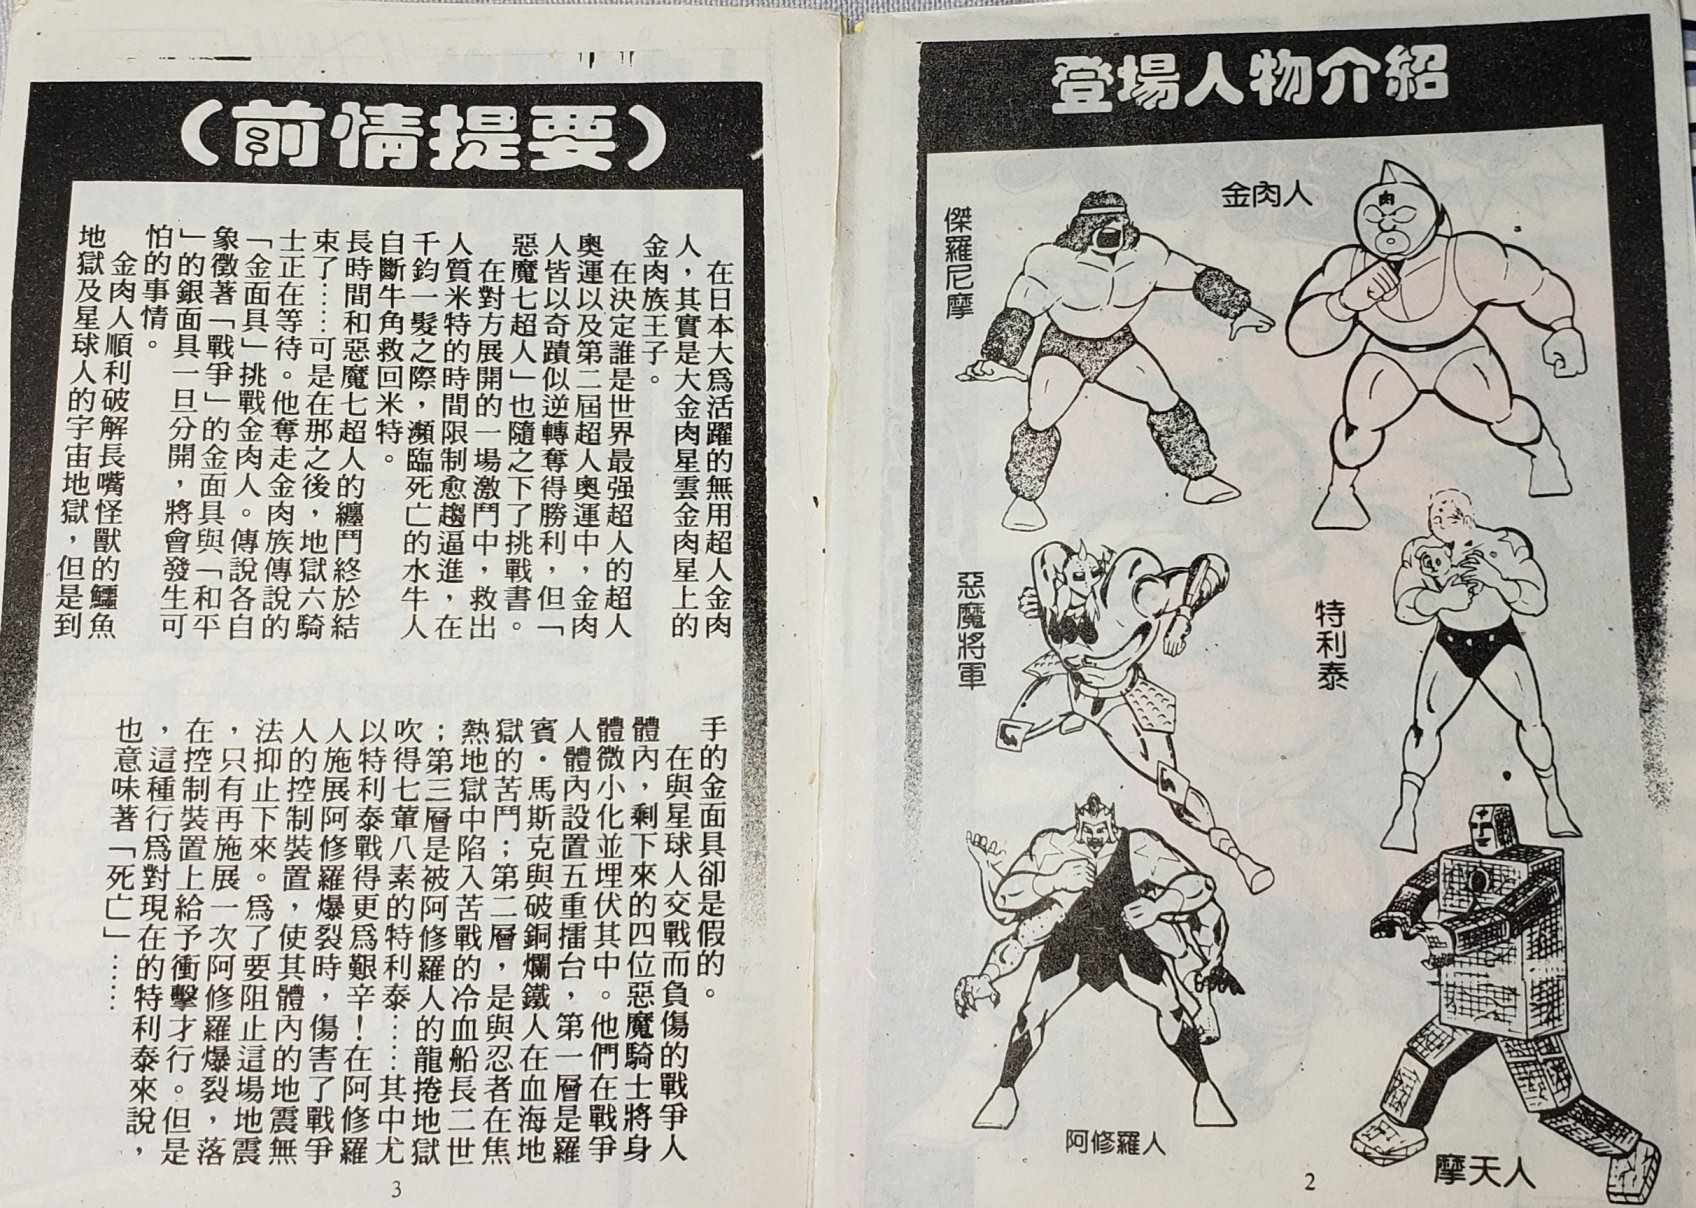 登場人物介紹
金肉人
傑羅尼摩
特利泰
惡魔將軍
阿修羅人
摩天人
2
（前情提要）
在日本大為活躍的無用超人金肉
人，其實是大金肉星雲金肉星上的
金肉族王子。
在決定誰是世界最强超人的超人
奧運以及第二屆超人奧運中，金肉
人皆以奇蹟似逆轉奪得勝利，但「
惡魔七超人」也隨之下了挑戰書。
在對方展開的一場激鬥中，救出
人質米特的時間限制愈趨逼進，在
千鈞一髮之際，瀕臨死亡的水牛人
自斷牛角救回米特。
長時間和惡魔七超人的纏鬥終於結
束了……可是在那之後，地獄六騎
士正在等待。他奪走金肉族傳說的
「金面具」挑戰金肉人。傳說各自
象徵著「戰爭」的金面具與「和平
」的銀面具一旦分開，將會發生可
怕的事情。
金肉人順利破解長嘴怪獸的鱷魚
地獄及星球人的宇宙地獄，但是到
手的金面具卻是假的。
在與星球人交戰而負傷的戰爭人
體內，剩下來的四位惡魔騎士將身
體微小化並埋伏其中。他們在戰爭
人體內設置五重擂台，第一層是羅
賓・馬斯克與破銅爛鐵人在血海地
獄的苦鬥；第二層，是與忍者在焦
熱地獄中陷入苦戰的冷血船長二世
；第三層是被阿修羅人的龍捲地獄
吹得七葷八素的特利泰……其中尤
以特利泰戰得更為艱辛！在阿修羅
人施展阿修羅爆裂時，傷害了戰爭
人的控制裝置，使其體內的地震無
法抑止下來。為了要阻止這場地震
，只有再施展一次阿修羅爆裂，落
在控制裝置上給予衝擊才行。但是
，這種行為對現在的特利泰來說，
也意味著「死亡」……
3